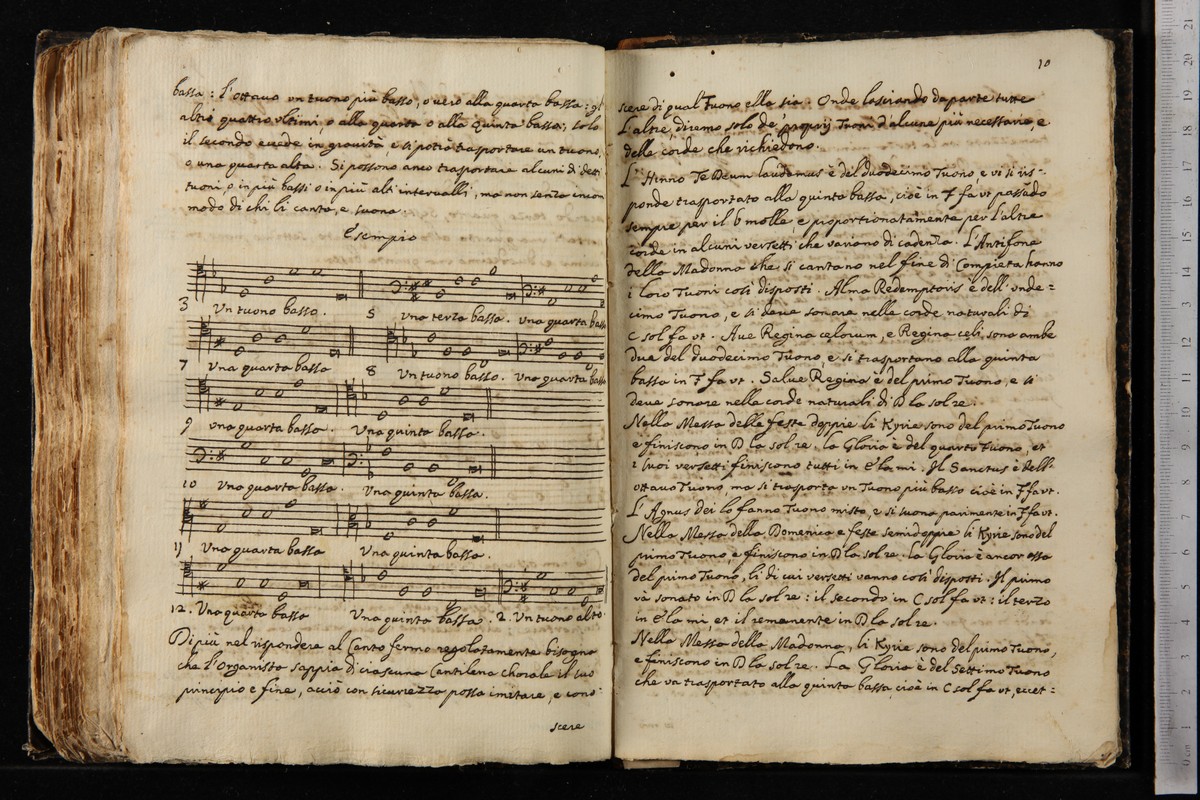 bassa: l'ottavo un tuono più basso, o vero alla quarta bassa: gl
altri quattro vltimi, o alla quarta o alla quinta bassa; solo
il secondo eccede in gravità e si potrà trasportare un tuono,
o una quarta alta. Si possono anco trasportare alcuni di detti
tuoni, o in più bassi o in più alti intervalli, ma non senza incom
modo di chi li canta, e suona.
Esempio
3 Vn tuono basso. 5 una terza bassa. una quarta bassa
7 Vna quarta bassa 8 Vn tuono basso. Vna quarta bassa
9 una quarta bassa. Vna quinta bassa.
10 Vna quarta bassa. Vna quinta bassa.
11 Vna quarta bassa Vna quinta bassa.
12. Vna quarta bassa Vna quinta bassa. 2. Vn tuono alto
Di più nel rispondere al Canto fermo regolatamente bisogna
che l'Organista sappia di ciascuna Cantilena Chorale il suo
principio e fine, acciò con sicurezza possa imitare, e cono:
scere
10
scere di qual Tuono ella sia. Onde lasciando da parte tutte
l'altre, diremo solo de' proprij Tuoni d'alcune più necessarie, e
delle corde che richiedono.
L'Hinno Te Deum laudamus è del duodecimo Tuono, e vi si ris-
ponde trasportato alla quinta bassa, cioè in F fa vt passado
sempre per il b molle, e proportionatamente per l'altre
corde in alcuni versetti che variano di cadenza. L'Antifone
della Madonna che si cantano nel fine di Compieta hanno
i loro Tuoni così disposti. Alma Redemptoris è dell'unde=
cimo Tuono, e si deve sonare nelle corde naturali di
C sol fa vt. Aue Regina celorum, e Regina celi, sono ambe
due del duodecimo Tuono, e si trasportano alla quinta
bassa in F fa vt. Salue Regina è del primo Tuono, e si
deve sonare nelle corde naturali di D la sol re.
Nella Messa delle feste doppie li Kyrie sono del primo Tuono
e finiscono in D la sol re. la Gloria è del quarto Tuono, et
i suoi versetti finiscono tutti in E la mi. Il Sanctus è dell'
ottavo Tuono, ma si trasporta un Tuono più basso cioè in F fa vt.
L'Agnus dei lo fanno Tuono misto, e si suona parimente in F fa vt.
Nella Messa della Domenica e feste semidoppie li Kyrie sono del
primo Tuono e finiscono in D la sol re. la Gloria è ancor essa
del primo Tuono, li di cui versetti vanno così disposti. Il primo
và sonato in D la sol re: il secondo in C sol fa vt: il terzo
in E la mi, et il remanente in D la sol re.
Nella Messa della Madonna, li Kyrie sono del primo Tuono,
e finiscono in D la sol re. La Gloria è del Settimo Tuono
che va trasportato alla quinta bassa, cioè in C sol fa vt, eccet: